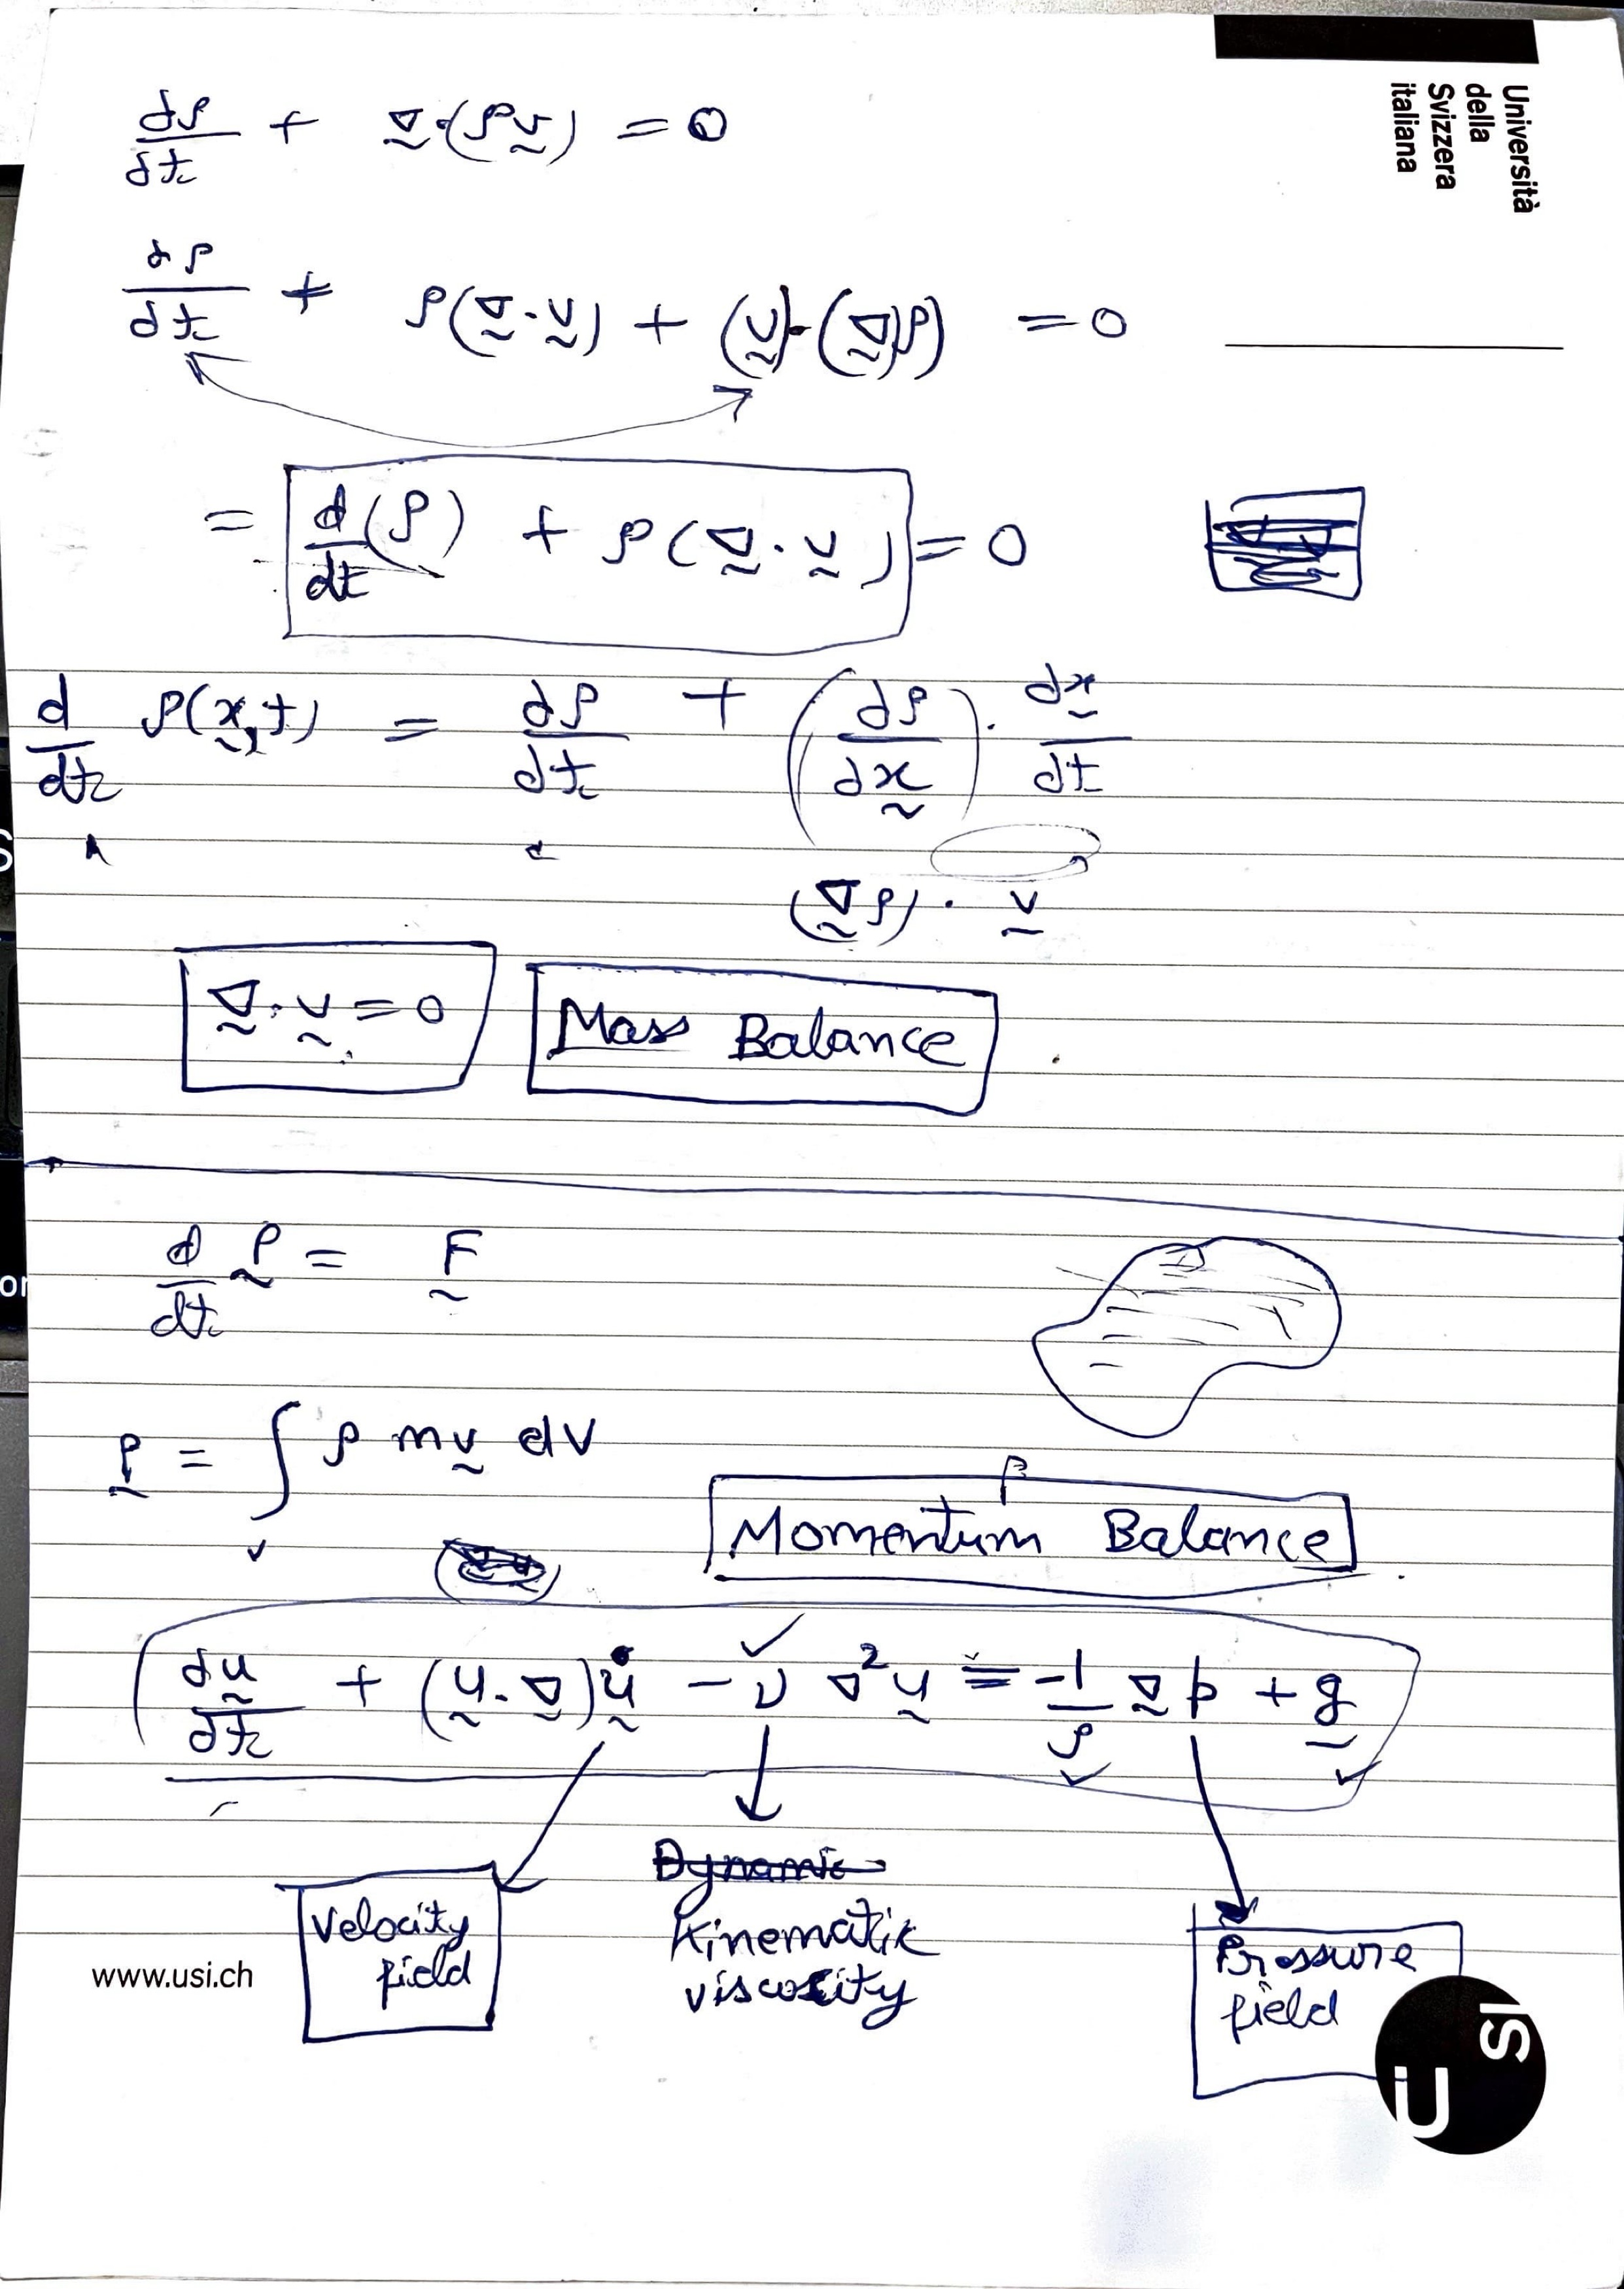 Università
della
Svizzera
italiana
∂ρ/∂t + ∇·(ρv) = 0
∂ρ/∂t + ρ(∇·v) + (v)·(∇ρ) = 0
= d/dt (ρ) + ρ(∇·v) = 0
d/dt ρ(x,t) = ∂ρ/∂t + (∂ρ/∂x)·dx/dt
(∇ρ)·v
∇·v = 0 Mass Balance
d/dt P = F
P = ∫_V ρ mv dV
Momentum Balance
∂u/∂t + (u·∇)u - ν ∇²u = -1/ρ ∇p + g
Velocity
field
Kinematic
viscosity
Pressure
field
www.usi.ch
USI